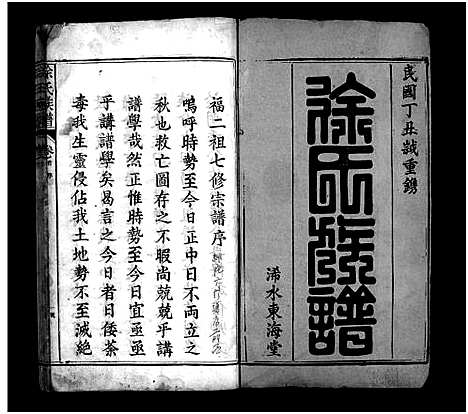 民國丁丑歲重鐫
徐氏族譜
浠水東海堂
福二祖七修宗譜序
嗚呼時勢至今日正中日不兩立之
秋也救亡圖存之不暇尚兢兢乎講
譜學哉然正惟時勢至今日宜亟亟
乎講譜學矣曷言之今日者日倭荼
毒我生靈侵佔我土地勢不至滅絶
徐氏族譜